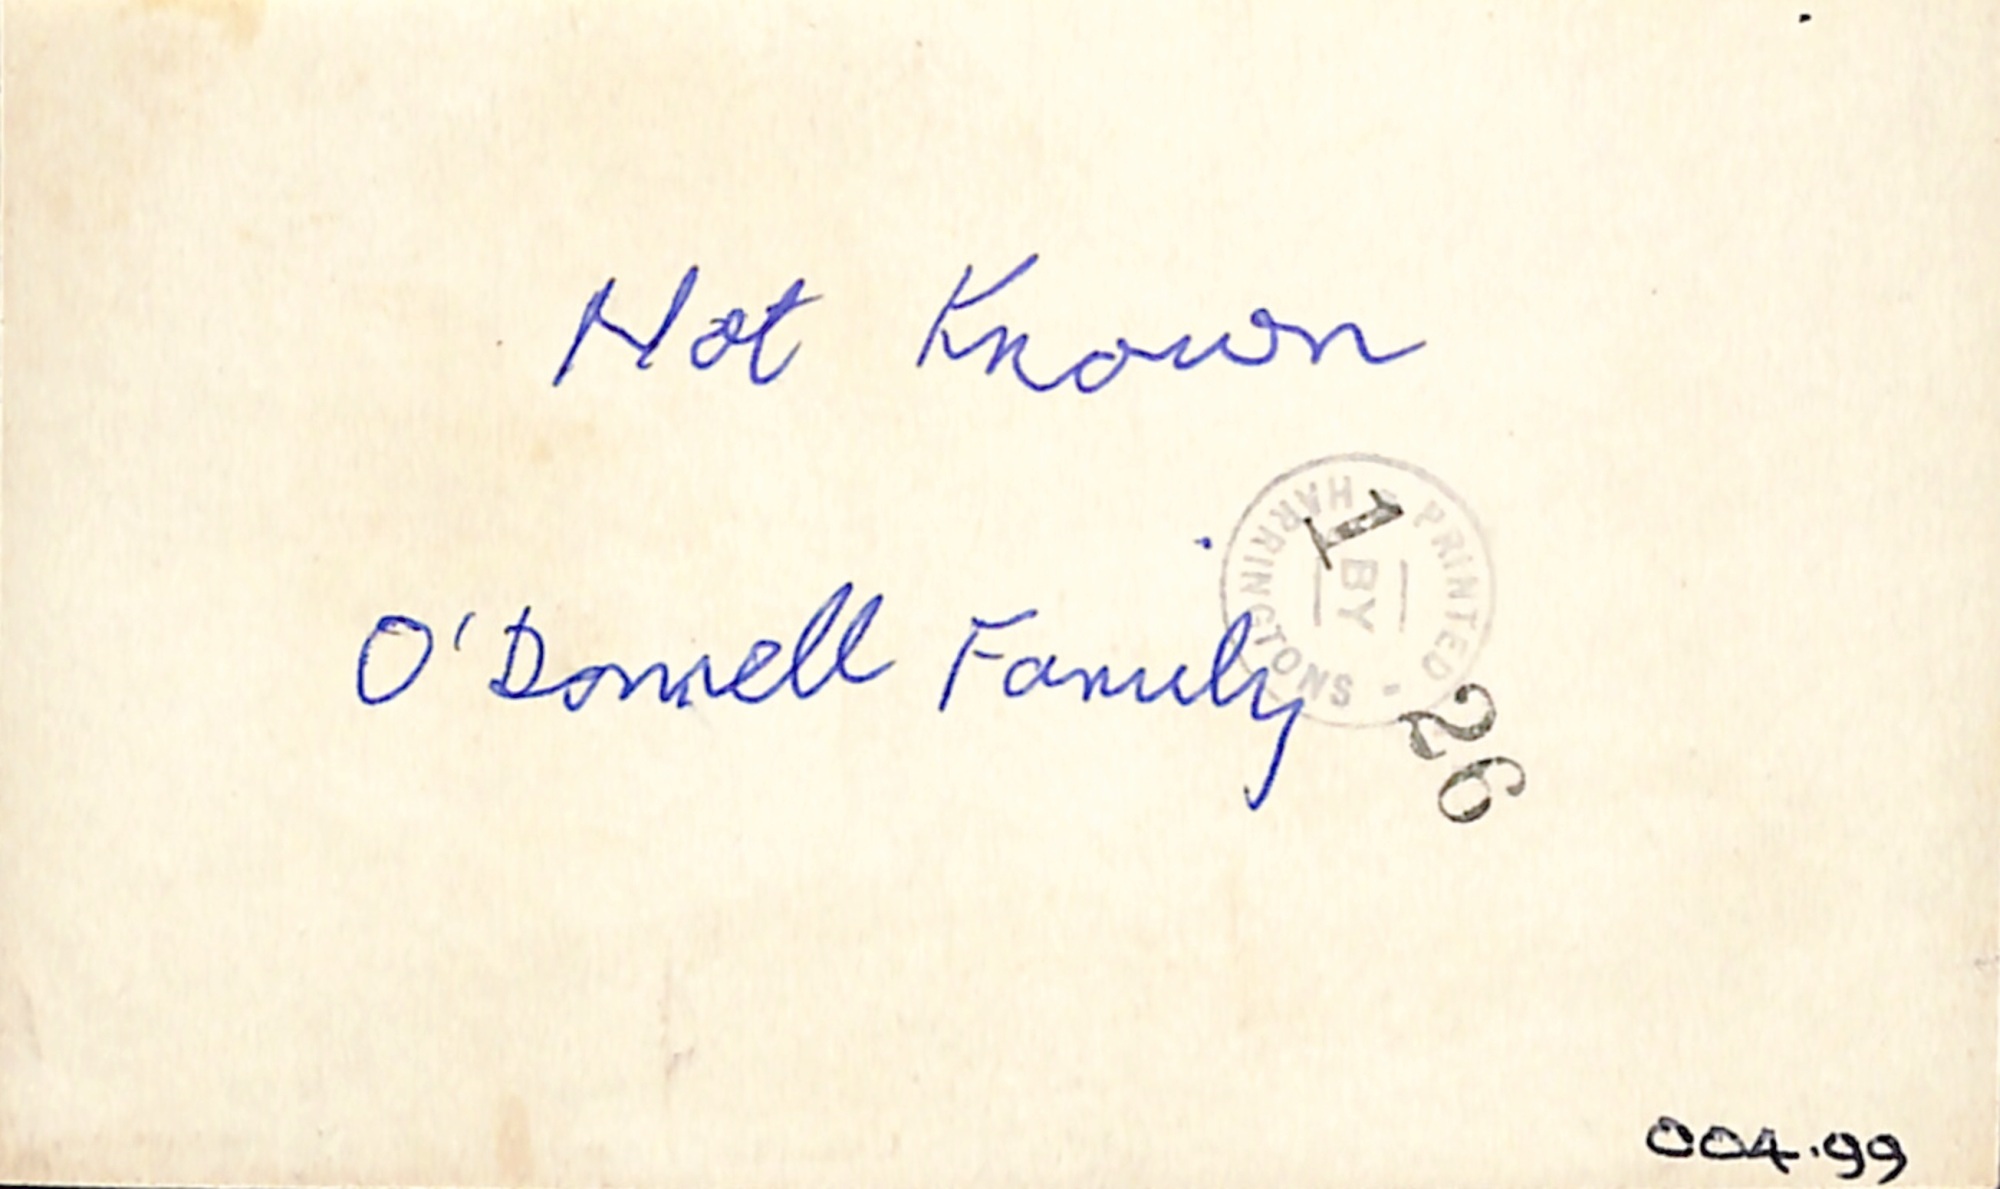 Not Known
PRINTED BY HARRINGTONS
1
O'Donnell Family
26
004.99